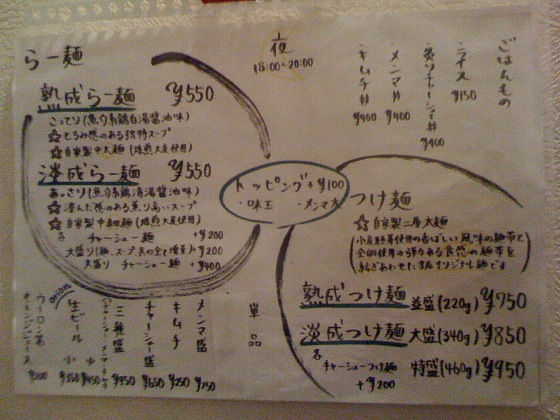 らー麺
熟成らー麺 ¥550
こってり(魚介系鶏白湯醤油味)
☆とろみ感のある独特スープ
☆自家製中太麺(焙煎大麦使用)
淡成らー麺 ¥550
あっさり(魚介系鶏清湯醤油味)
☆澄んだ感のある薫り高いスープ
☆自家製中細麺(焙煎大麦使用)
各 チャーシュー麺 +¥200
大盛り(麺、スープ、具の全て増量) +¥200
大盛りチャーシュー麺 +¥400
夜
18:00~20:00
ごはんもの
ライス ¥150
炙りチャーシュー丼 ¥400
メンマ丼 ¥400
キムチ丼 ¥400
トッピング+¥100
・味玉 ・メンマ大
つけ麺
☆自家製二層太麺
(小麦胚芽使用の香ばしい風味の麺帯と
全卵使用の弾力ある食感の麺帯を
紡ぎあわせた当店オリジナル麺です)
熟成つけ麺 並盛(220g) ¥750
淡成つけ麺 大盛(340g) ¥850
特盛(460g) ¥950
各 チャーシューつけ麺
+¥200
単品
メンマ盛 ¥250
キムチ ¥250
チャーシュー盛 ¥650
三種盛 ¥450
(チャーシュー・メンマ・キムチ)
生ビール 中 ¥450
小 ¥350
ウーロン茶
オレンジジュース ¥200